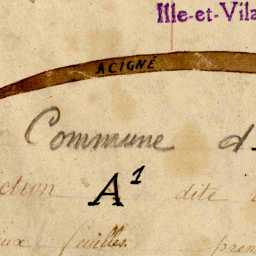 Ille-et-Vila
ACIGNÉ
Commune d
ction A¹ dite
feuilles prem